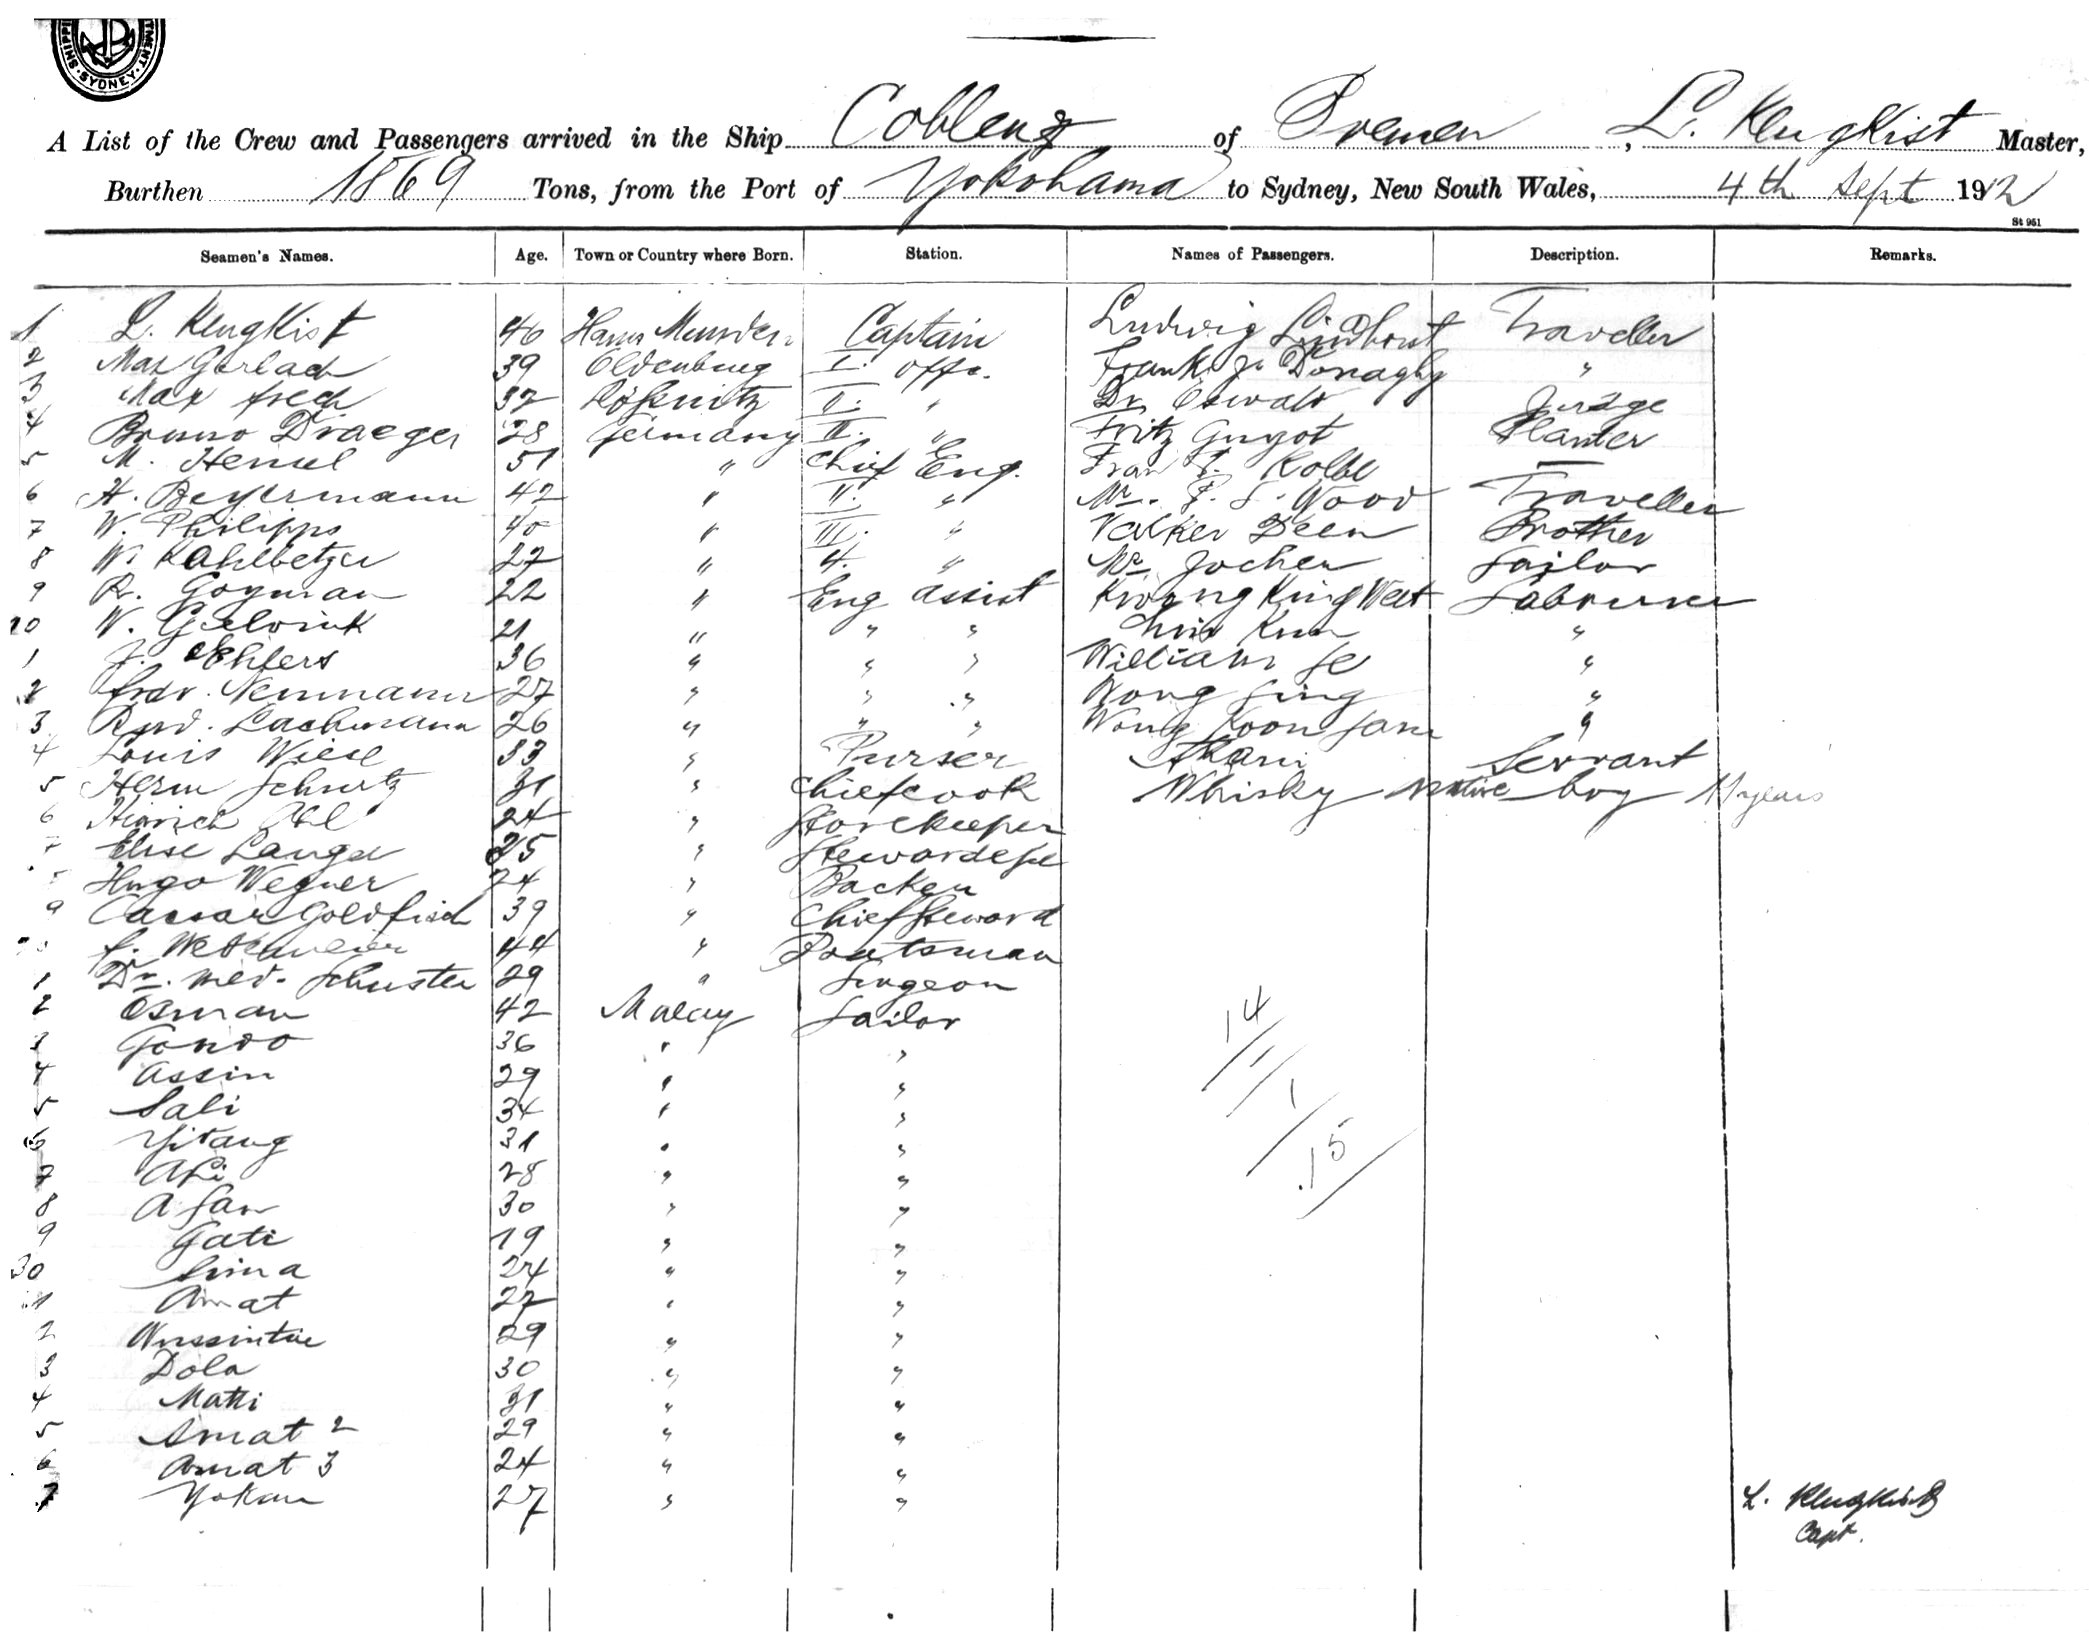 SHIPPING DEPARTMENT SYDNEY
A List of the Crew and Passengers arrived in the Ship Coblenz of Bremen, L. Klugkist Master,
Burthen 1869 Tons, from the Port of Yokohama to Sydney, New South Wales, 4th Sept 1912
St 951
Seamen's Names. Age. Town or Country where Born. Station. Names of Passengers. Description. Remarks.
1 L. Klugkist 40 Hann Munden Captain Ludwig Lindhorst Traveller
2 Max Gerlach 39 Oldenburg I. offc. Frank J. Donaghy "
3 Max Frech 32 II. " Dr Oswald Judge
4 Bruno Draeger 28 Germany II. " Fritz Guyot Planter
5 M. Hensel 51 " Chief Eng. Frau Kolbe —
6 H. Beyermann 42 " II. " Mr. Wood Traveller
7 W. Philipps 40 " III. " Valker Deen Brother
8 W. Kahlbetzer 27 " 4. " Mr Jochen Sailor
9 R. Goyman 22 " Eng assist Kwong King Labourer
10 W. 21 " " " Kum "
1 J. Ehlers 36 " " " William "
2 Fredr. Neumann 27 " " " Wong Sing "
3 Rud. Lachmann 26 " " " Wong Koon "
4 Louis Wiese 33 " Purser Servant
5 Herm Schurtz 31 " Chiefcook Whisky native boy 11 years
6 Hinrich Ahl 24 " Storekeeper
7 Elise Lange 25 " Stewardess
8 Hugo Wegner 24 " Backer
9 Caesar Goldfisch 39 " Chiefsteward
0 44 " Boutsman
1 Dr. med. Schuster 29 " Surgeon
2 Osman 42 Malay Sailor
3 Gondo 36 " "
4 Assin 29 " "
5 Sali 34 " "
6 31 " "
7 Ali 28 " "
8 Asan 30 " "
9 Gati 19 " "
30 Sima 24 " "
1 Amat 22 " "
2 29 " "
3 Dola 30 " "
4 Matti 31 " "
5 Amat 2 29 " "
6 Amat 3 24 " "
7 Yokan 27 " "
14
1
1
15
L. Klugkist
Capt.